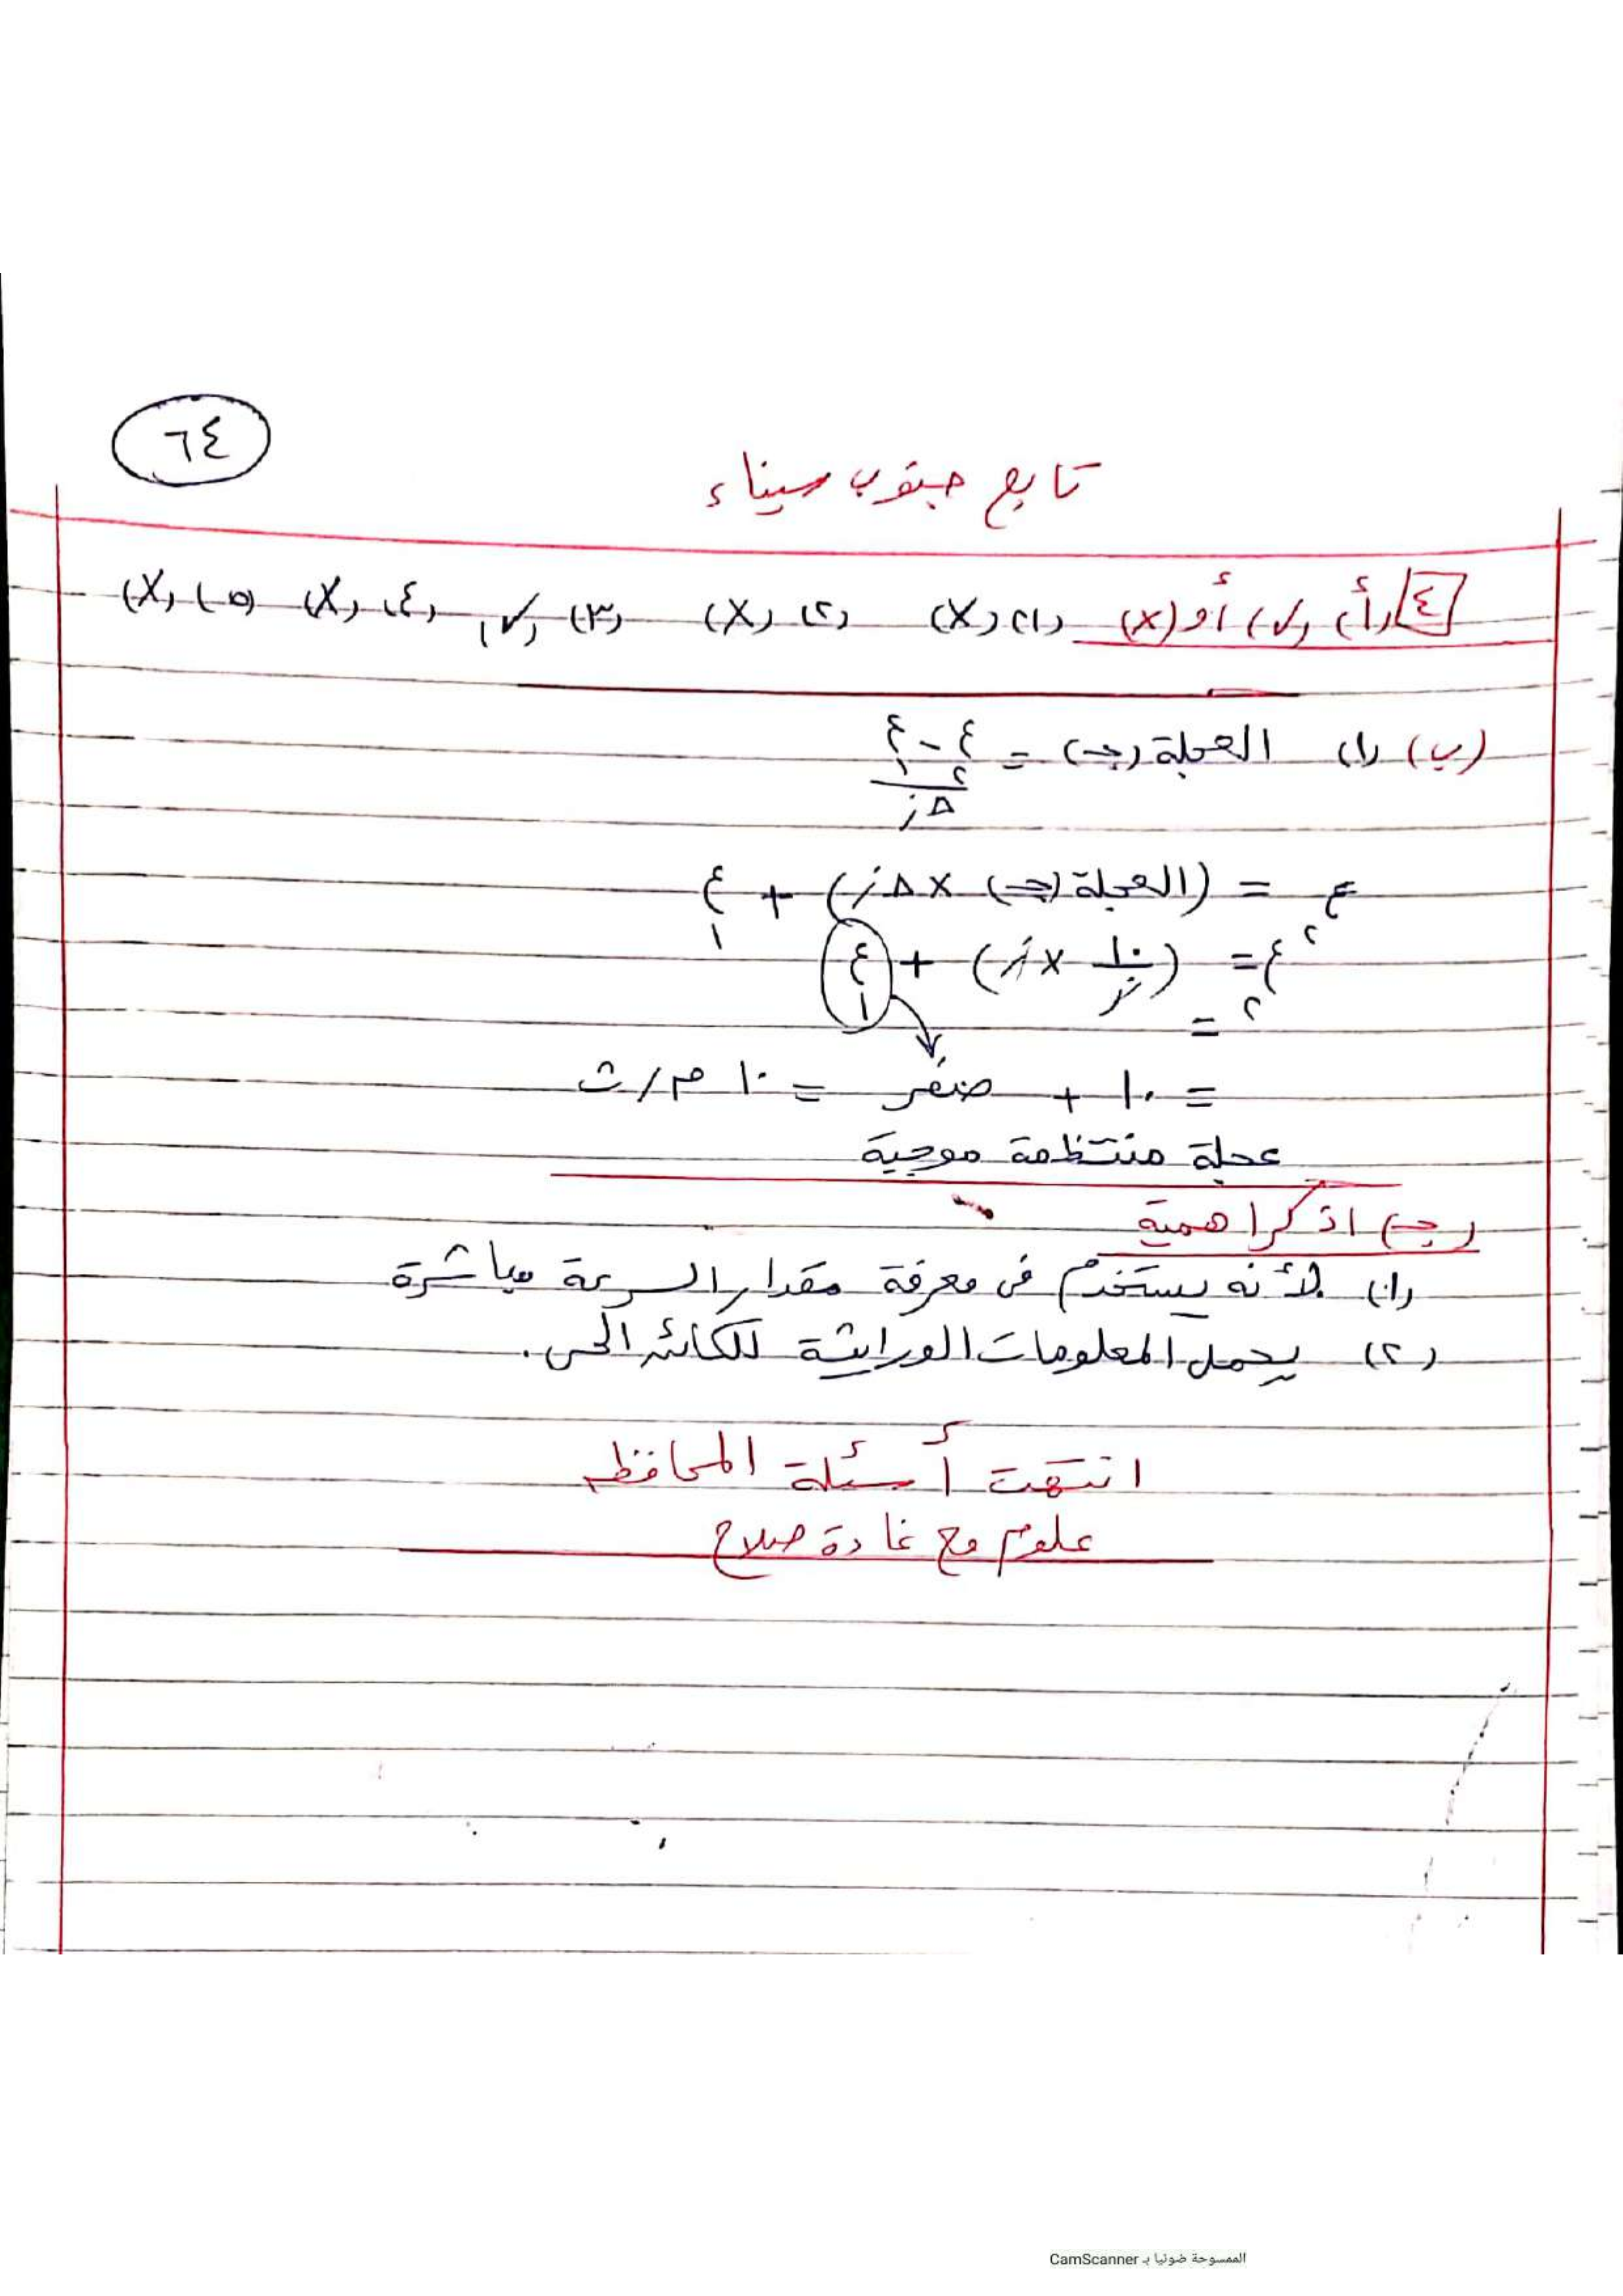 ٦٤
تابع جنوب سيناء
٤ (أ) (√) أو (x) (١) (X) (٢) (X) (٣) (√) (٤) (X) (٥) (X)
(ب) (١) العجلة (جـ) = ع٢ - ع١ / Δز
ع٢ = (العجلة (جـ) × Δز) + ع١
ع٢ = (١٠/ز × ز) + ع١
=
= ١٠ + صفر = ١٠ م/ث
عجلة منتظمة موجبة
(جـ) اذكر اهمية
(١) لأنه يستخدم فى معرفة مقدار السرعة مباشرة
(٢) يحمل المعلومات الوراثية للكائن الحى.
انتهت أسئلة المحافظ
علوم مع غادة صلاح
الممسوحة ضوئيا بـ CamScanner